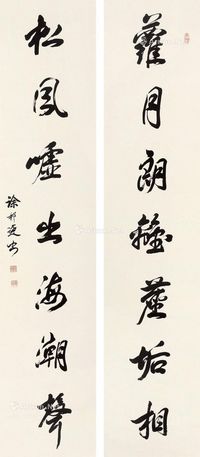 蘿月朗離塵垢相
松風噓出海潮聲
徐邦達書